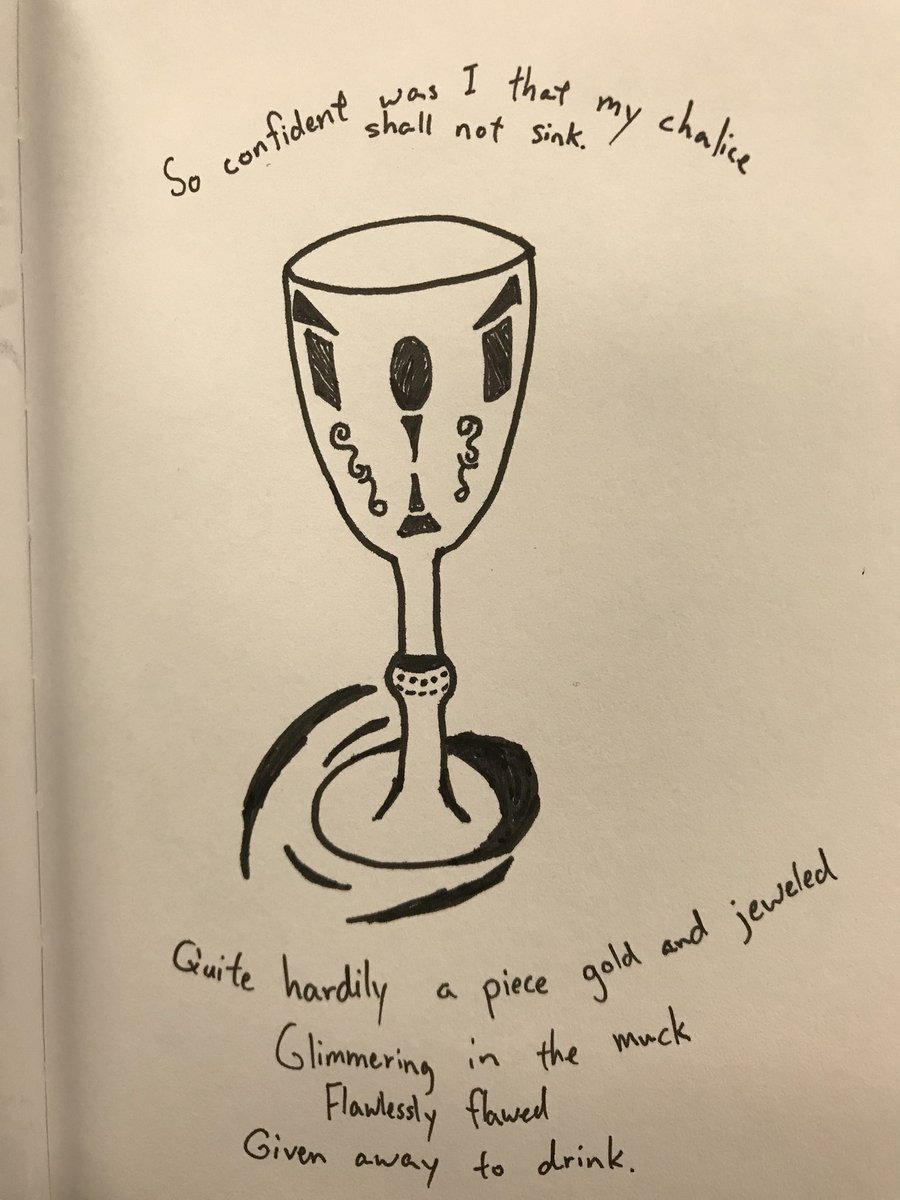 So confident was I that my chalice
shall not sink.
Quite hardily a piece gold and jeweled
Glimmering in the muck
Flawlessly flawed
Given away to drink.